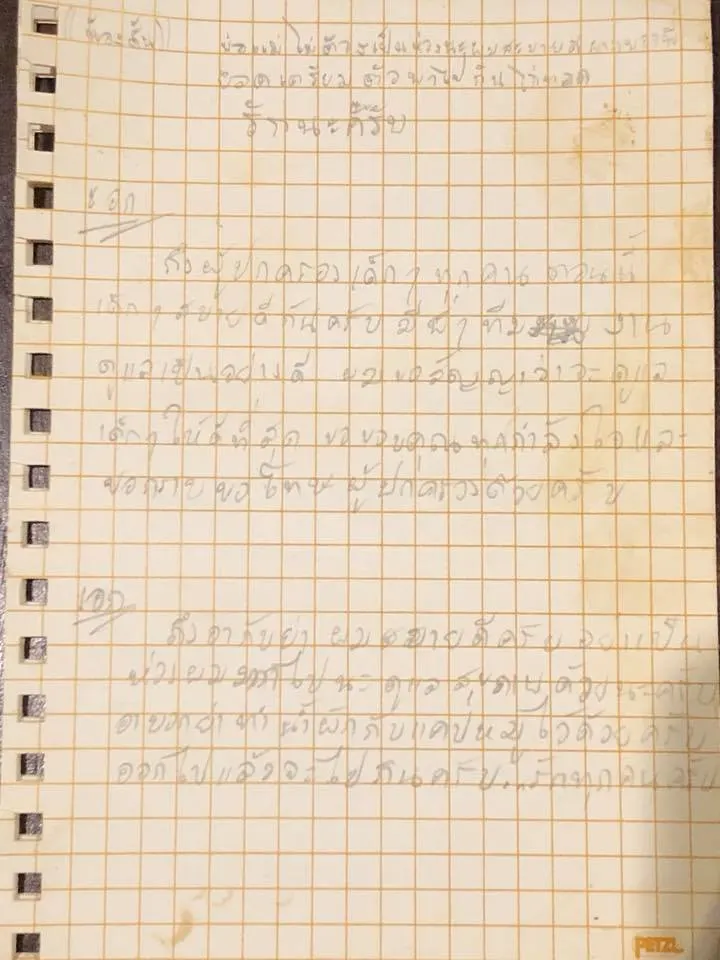 พ่อแม่ไม่ต้องเป็นห่วงนะผมสบายดี
ยอดเตรียมตัวพาไปกินไก่ทอด
รักนะครับ
จากเอก
ถึงผู้ปกครองเด็กๆ ทุกคน ตอนนี้
เด็กๆ สบายดีกันครับ มีพี่ๆ ทีม งาน
ดูแลเป็นอย่างดี ผมขอสัญญาว่าจะดูแล
เด็กๆ ให้ดีที่สุด ขอขอบคุณทุกกำลังใจและ
ขอกราบขอโทษผู้ปกครองด้วยครับ
เอก
ถึงอากับย่า ผมสบายดีครับ อย่าเป็น
ห่วงผมมากไปนะ ดูแลสุขภาพด้วยนะครับ
อาบอกย่าทำน้ำผักกับแคปหมูไว้ด้วยครับ
ออกไปแล้วจะไปกินครับ...รักทุกคนครับ
PETZL